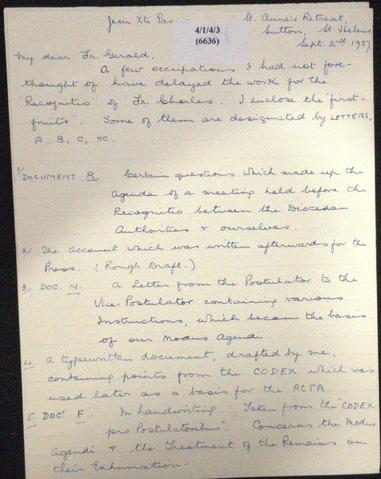 Jesu Xti Pas
4/1/4/3
(6636)
St. Anne's Retreat,
Sutton, St Helens
Sept. 2nd 1937.
My dear Fr. Gerald,
A few occupations I had not fore-
thought of have delayed the work for the
Recognitio of Fr. Charles. I enclose the "first-
fruits". Some of them are designated by LETTERS,
A, B, C, &c.
1/ DOCUMENT R. Certain questions which made up the
Agenda of a meeting held before the
Recognitio between the Diocesan
Authorities & ourselves.
2/ The account which was written afterwards for the
Press. (Rough Draft.)
3/ DOC. N. A Letter from the Postulator to the
Vice Postulator containing various
Instructions, which became the basis
of our Modus Agendi
4/ A typewritten document, drafted by me,
containing points from the CODEX which was
used later as a basis for the ACTA.
5/ DOCT F. In handwriting. Taken from the "CODEX
pro Postulatoribus". Concerns the Modus
Agendi & the Treatment of the Remains on
their Exhumation.